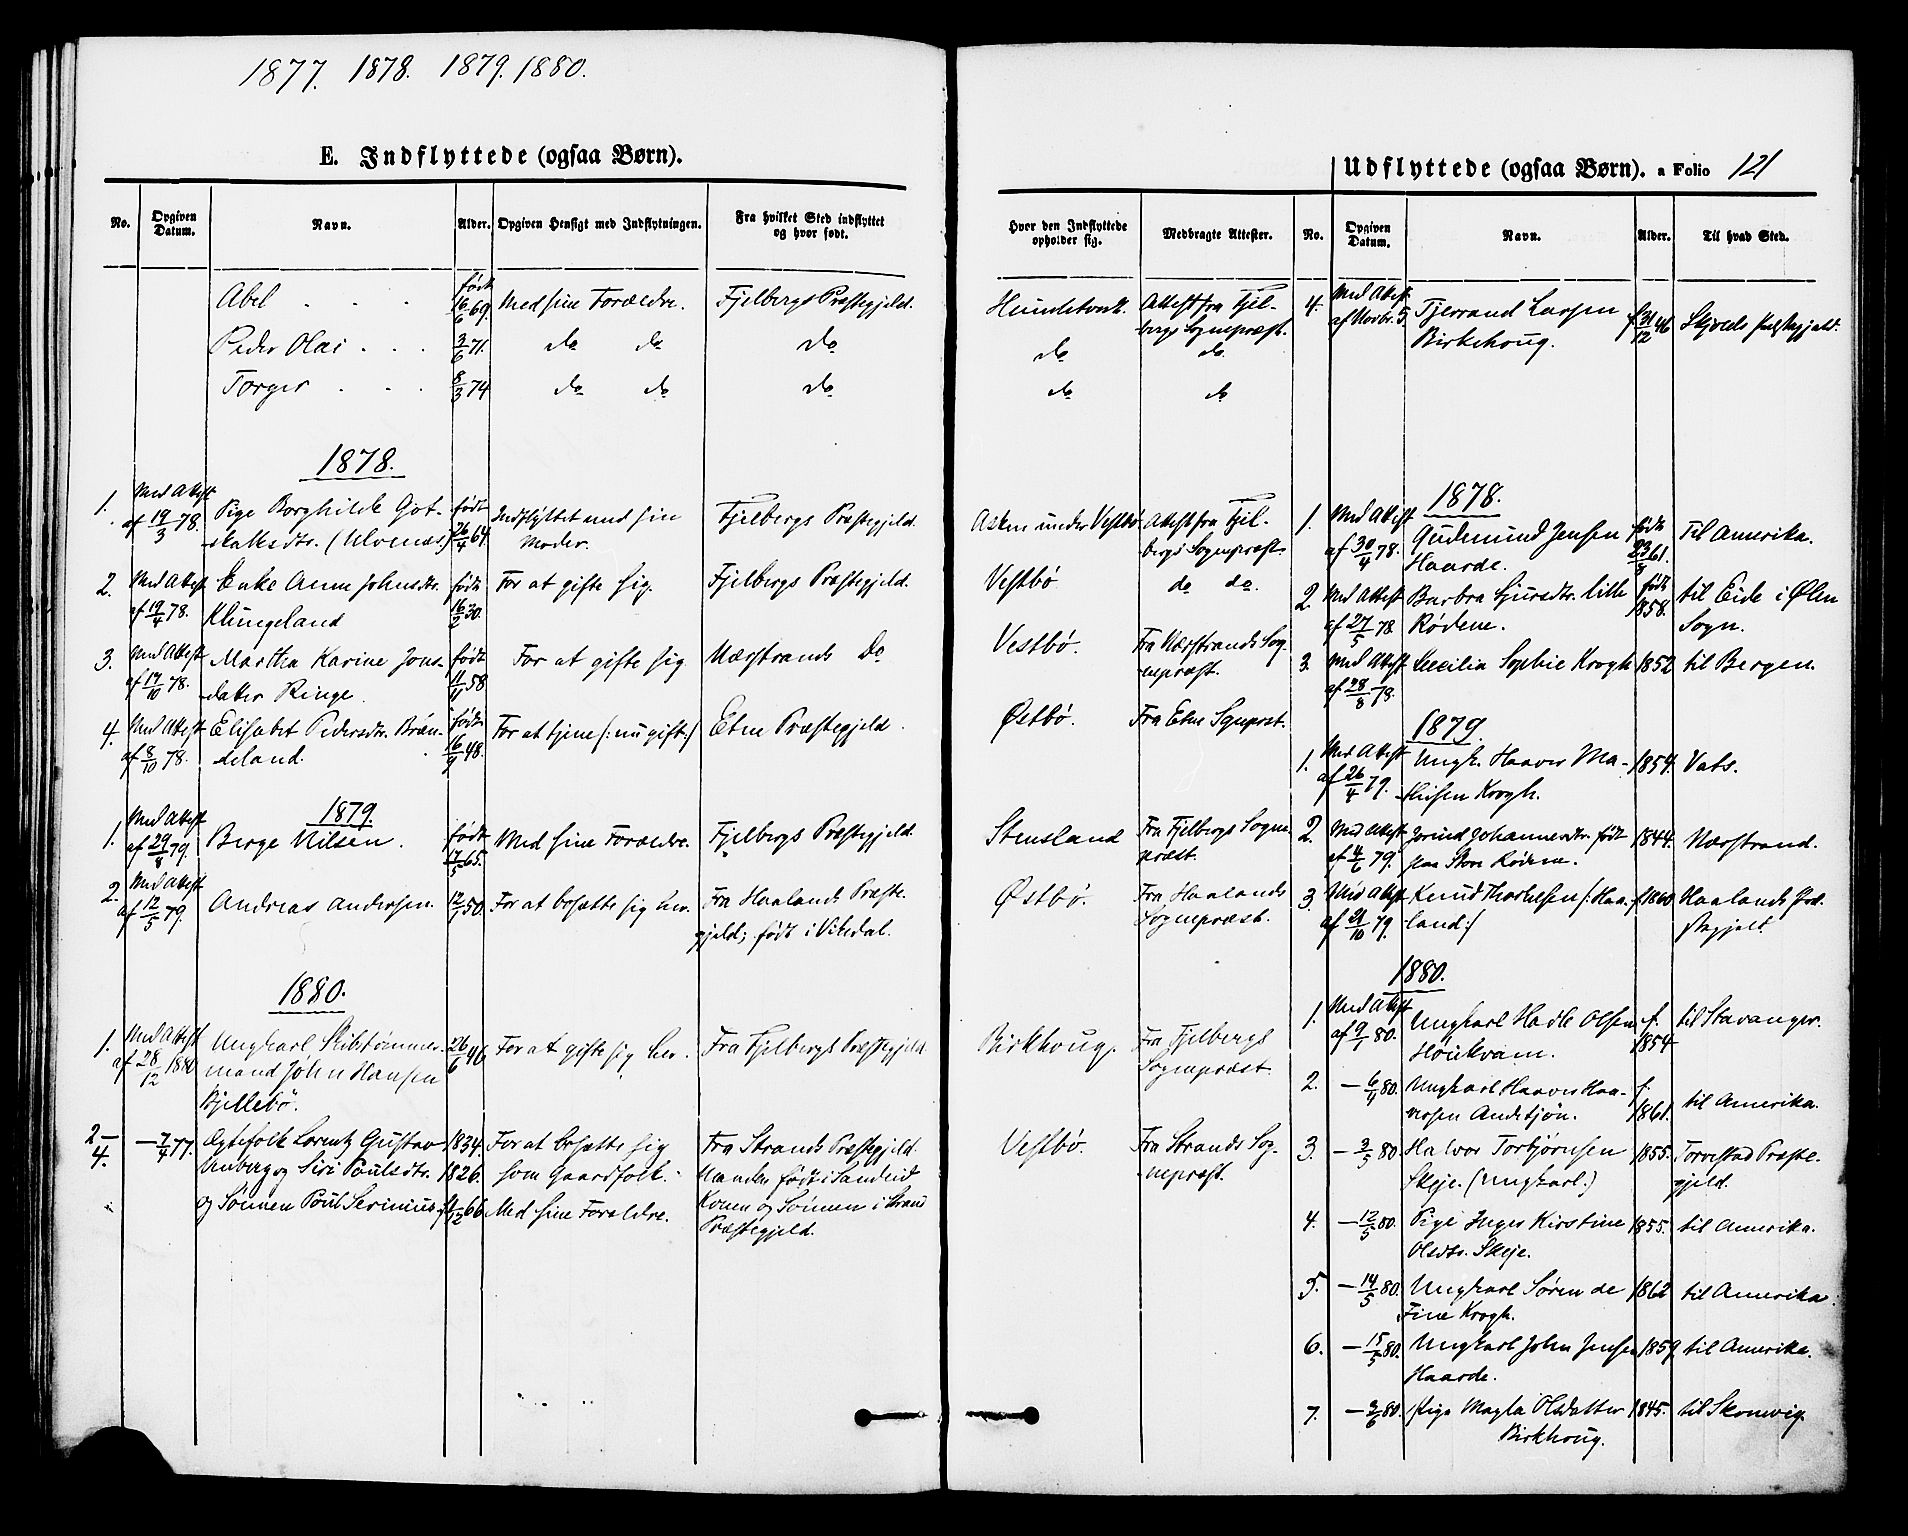 1877. 1878. 1879. 1880.
E. Indflyttede (ogsaa Børn).
No. Opgiven Datum. Navn. Alder. Opgiven Hensigt med Indflytningen. Fra hvilket Sted indflyttet og hvor født.
Abel . . . født 16/6 69. Med sine Forældre. Fjelbergs Præstegjeld.
Peder Olai . . . 3/6 71. do do do
Torger . . . 8/3 74 do do do
1878.
1. Med Attest født
af 19/3 78. Pige Borghilde Got- 26/4 64. Indflyttet med sin Fjelbergs Præstegjeld.
skalksdtr. (Ulvenæs) Moder.
2. Med Attest Enke Anne Johnsdtr. født For at gifte sig. Fjelbergs Præstegjeld.
af 19/4 78. Klungeland 16/2 30.
3. Med Attest Martha Karine Jons- født For at gifte sig Nærstrands Do
af 14/10 78. datter Ringe. 11/11 58
4. Med Attest Elisabet Pedersdtr. Bræn- født For at tjene (: nu gift :) Etne Præstegjeld.
af 8/10 78. deland. 16/9 48.
1879.
1. Med Attest født
af 29/8 79. Berge Nilsen. 17/5 65. Med sine Forældre. Fjelbergs Præstegjeld.
2. Med Attest
af 12/5 79. Andreas Andersen. 12/1 50. For at bosætte sig her. Fra Haalands Præste-
gjeld; født i Vikedal.
1880.
1. Med Attest Ungkarl Skibstømmer- 26/6 46 For at gifte sig her. Fra Fjelbergs Præstegjeld.
af 28/12 1880 mand John Hansen
Bjellebö.
2- — 7/4 77. Ægtefolk Lorentz Gustav 1834. For at bosætte sig Fra Strands Præstegjeld.
4. Unberg og Siri Poulsdtr. 1826. som Gaardfolk. Manden født i Sandeid
og Sönnen Poul Serinius 66 Med sine Forældre. Konen og Sönnen i Strand
Præstegjeld.
Udflyttede (ogsaa Børn). a Folio 121
Hvor den Indflyttede opholder sig. Medbragte Attester. No. Opgiven Datum. Navn. Alder. Til hvad Sted.
Attest fra Fjel- 4. Med Attest Tjerrand Larsen f. 31/12 46 Skjolds Præstegjeld.
bergs Sognepræst. af Novbr. 5. Birkehoug.
do do
do do
1878.
Asken under Vestbö Attest fra Fjel- 1. Med Attest Gudmund Jensen født Til Amerika.
bergs Sognepræst. af 30/4 78. Haarde. 23/8 61.
Vestbö do do. 2. Med Attest Barbra Sjursdtr. lille født til Eide i Ølen
af 27/5 78. Rödene. 1858. Sogn.
Vestbö. Fra Nærstrands Sog- 3. Med Attest Cecilia Sophie Krogh 1852 til Bergen.
nepræst. af 28/8 78.
Östbö. Fra Etne Sgnprst.
1879.
1. Med Attest Ungk. Haaver Ma- 1854. Vats.
af 26/4 79. thisen Krogh.
Stensland Fra Fjelbergs Sogne- 2. Med Attest Jorind Johannesdtr. født 1844. Nærstrand.
præst. af 4/6 79. paa Store Rödene.
Östbö. Fra Haalands 3. Med Attest Knud Thorkelsen (: Haa- f 1860 Haalands Præ-
Sognepræst. af 21/10 79. land :) stegjeld
1880.
1. Med Attest Ungkarl Hadle Olsen f. til Stavanger.
af 9/1 80. Höikvam. 1854
Birkhoug. Fra Fjelbergs
Sognepræst.
2. — 6/4 80. Ungkarl Haaver Haa- f. til Amerika.
versen Andstjön. 1861.
Vestbö. Fra Strands Sog- 3. — 3/5 80 Halvor Torbjörnsen 1855. Torvestad Præste-
nepræst. Skeje. (Ungkarl.) gjeld.
4. — 12/5 80. Pige Inger Kirstine 1855. til Amerika.
Olsdtr. Skeje.
5. — 14/5 80. Ungkarl Sören de 1862 til Amerika.
Fine Krogh.
6. — 15/5 80. Ungkarl John Jensen 1859. til Amerika.
Haarde.
7. — 2/6 80. Pige Magla Olsdatter 1845. til Skonevig.
Birkhoug.